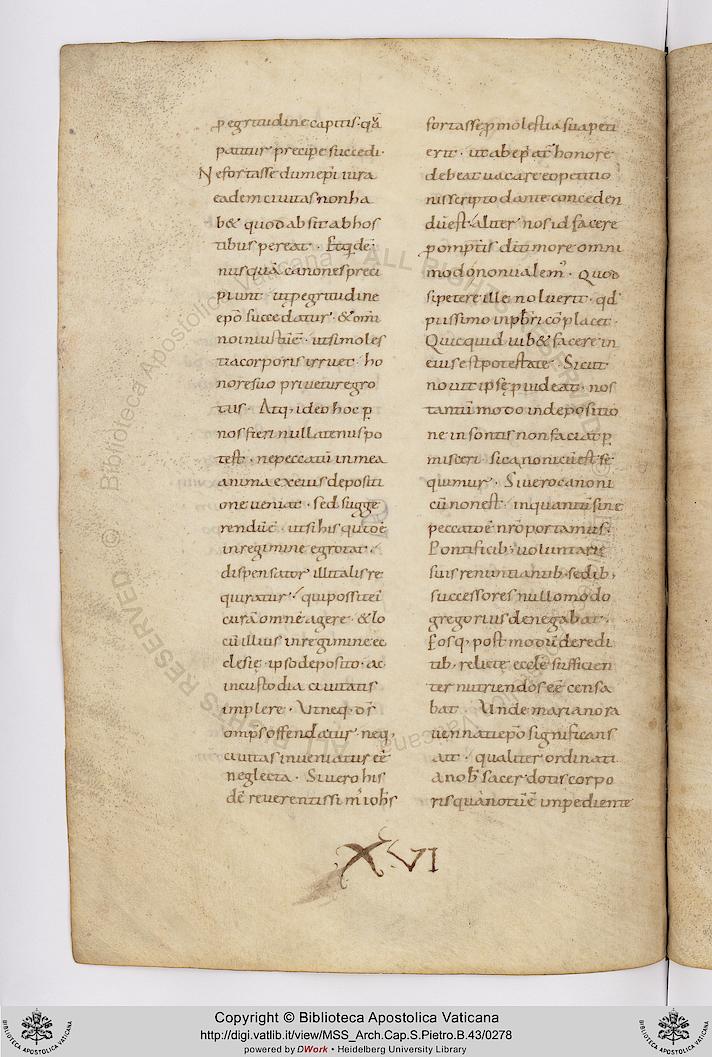 p egritudine capitis · quā
patitur precipe succedi ·
Ne fortasse dum epi iura
eadem ciuitas non ha
b& quod absit ab hos
tibus pereat · Et q̄dem
nusquā canones preci
piunt · ut p egritudine
epō succedatur · & om̄i
no iniustū ē · ut si moles
tia corporis irruet · ho
nore suo priuetur egro
tus · Atq; ideo hoc p̄
nos fieri nullatenus po
test · ne peccatū in mea
anima ex eius depositi
one ueniat · sed sugge
rendū ē · ut si his qui ē
in regimine egrotat ·
dispensator illi talis re
quiratur · qui possit ei
curā omnē agere · & lo
cū illius in regimine ec
clesię · ipso deposito · ac
in custodia ciuitatis
implere · Ut neq; ds̄
omps offendatur · neq;
ciuitas inueniatur eē
neglecta · Si uero his
dē reuerentissim' iohs̄
fortasse p̄ molestia sua peti
erit · ut ab ep̄at' honore
debeat uacare eo petitio
nis scripto dante conceden
dū est · aliter nos id facere
p omptis dn̄i timore omni
modo non ualem' · Quod
si petere ille noluerit · qd̄
piissimo inpr̄bri cō placet ·
Quicquid iub& facere in
eius est potestate · Sicut
nouit ipsę puideat · nos
tantū modo in depositio
ne insontis non faciat p̄
misceri · si canonicū est se
quimur · Si uero canoni
cū non est · in quantū sine
peccato ē nr̄o portamus ·
Pontificib; uoluntarie
suis renuntiantib; sedib;
successores nullo modo
gregorius denegabat ·
Eosq; post modū de redi
tib; relicte eccle sufficien
ter nutriendos eē censa
bat · Unde mariano ra
uennati epō significans
ait · qualiter ordinati
a nob̄ sacerdotis corpo
ris quā notū ē impediente
XVI
Copyright © Biblioteca Apostolica Vaticana
http://digi.vatlib.it/view/MSS_Arch.Cap.S.Pietro.B.43/0278
powered by DWork • Heidelberg University Library